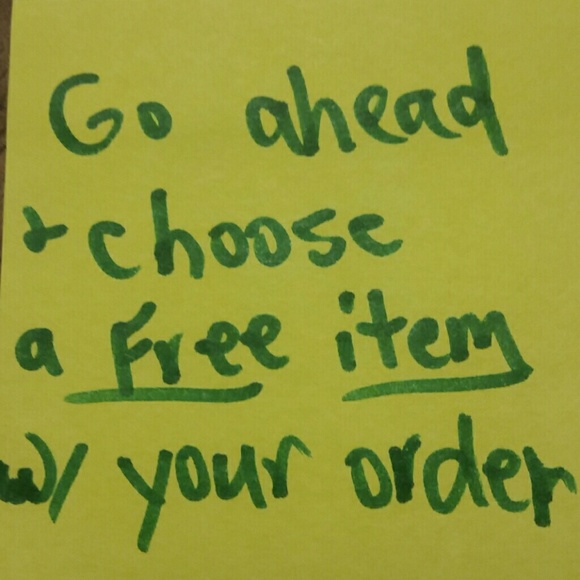 Go ahead
+ choose
a Free item
w/ your order